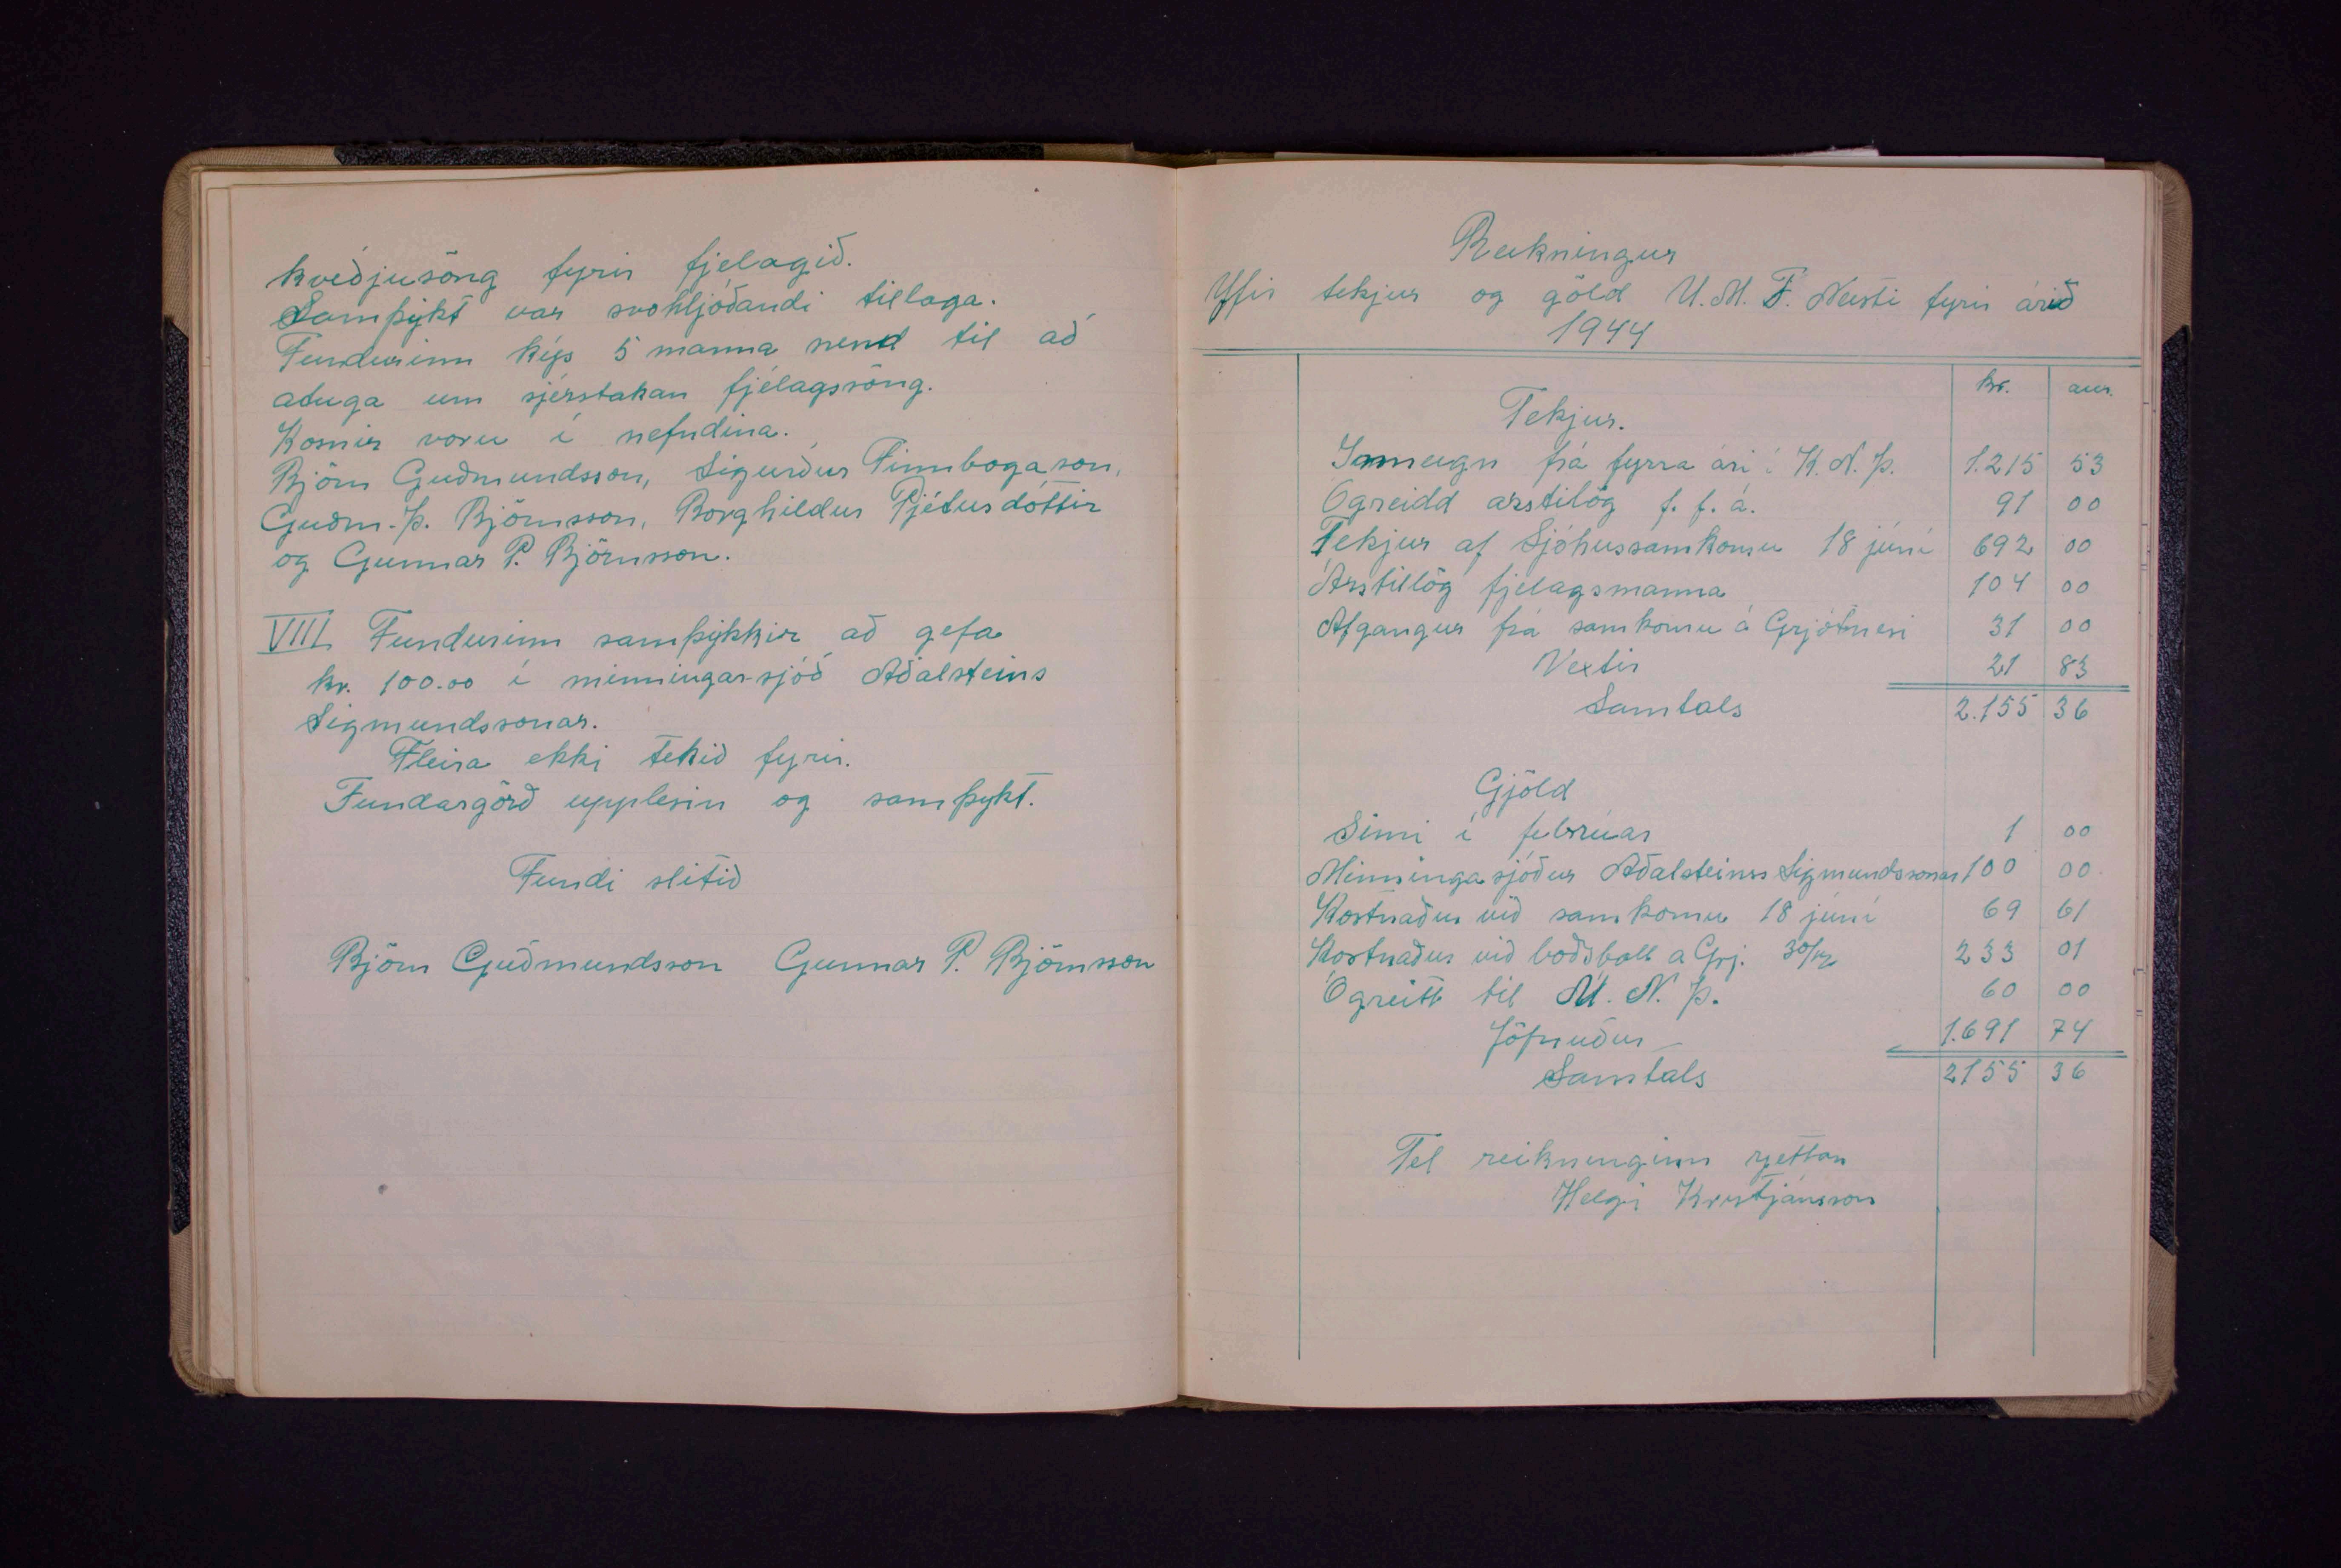 kveðjusöng fyrir fjelagið.
Samþykt var svohljóðandi tillaga.
Fundurinn kýs 5 manna nend til að
atuga um sjérstakan fjélagssöng.
Kosnir voru í nefndina.
Björn Guðmundsson, Sigurður Finnbogason,
Guðm. Þ. Björnsson, Borghildur Pjétursdóttir
og Gunnar P. Björnsson.
VIII Fundurinn samþykkir að gefa
kr. 100.00 í minningarsjóð Aðalsteins
Sigmundssonar.
Fleira ekki tekið fyrir.
Fundargörð upplesin og samþykt.
Fundi slitið
Björn Guðmundsson Gunnar P. Björnsson
Reikningur
Yfir tekjur og göld U.M.F. Neisti fyrir árið
1944
kr. aur.
Tekjur.
Inneign frá fyrra ári í K.N.Þ. 1.215 53
Ógreidd arstilög f. f. á. 91 00
Tekjur af Sjóhussamkomu 18 júní 692 00
Arstillög fjelagsmanna 104 00
Afgangur frá samkomu á Grjótnesi 31 00
Vextir 21 83
Samtals 2.155 36
Gjöld
Simi í febrúar 1 00
Minningasjóður Aðalsteins Sigmundssonar 100 00
Kostnaður við samkomu 18 júní 69 61
Kostnaður við boðsball a Grj. 30/12 233 01
Ógreitt til U.N.Þ. 60 00
Jöfnuður 1.691 74
Samtals 2155 36
Tel reikninginn rjettan
Helgi Kristjánsson